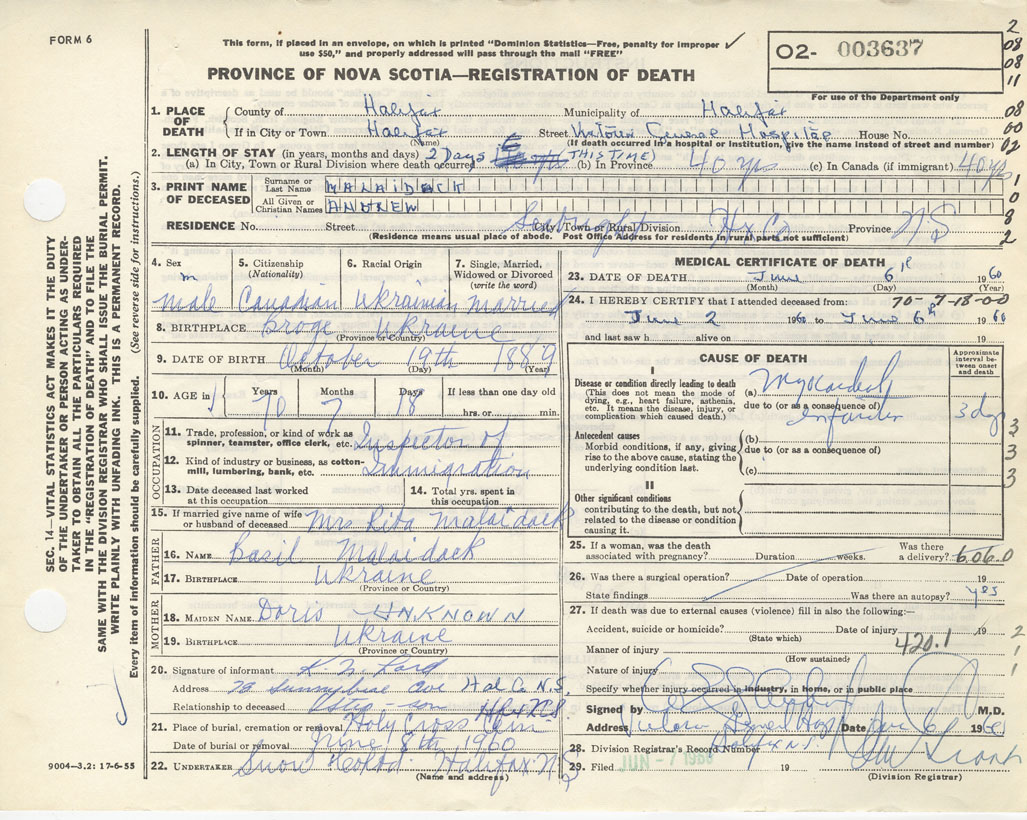 FORM 6
This form, if placed in an envelope, on which is printed "Dominion Statistics—Free, penalty for improper
use $50," and properly addressed will pass through the mail "FREE"
PROVINCE OF NOVA SCOTIA—REGISTRATION OF DEATH
02- 003637
For use of the Department only
2
08
08
11
08
60
02
1
0
8
2
SEC. 14—VITAL STATISTICS ACT MAKES IT THE DUTY
OF THE UNDERTAKER OR PERSON ACTING AS UNDER-
TAKER TO OBTAIN ALL THE PARTICULARS REQUIRED
IN THE "REGISTRATION OF DEATH" AND TO FILE THE
SAME WITH THE DIVISION REGISTRAR WHO SHALL ISSUE THE BURIAL PERMIT.
WRITE PLAINLY WITH UNFADING INK. THIS IS A PERMANENT RECORD.
Every item of information should be carefully supplied. (See reverse side for instructions.)
1. PLACE OF DEATH
County of Halifax Municipality of Halifax
If in City or Town Halifax Street Victoria General Hospital House No.
(Name) (If death occurred in a hospital or institution, give the name instead of street and number)
2. LENGTH OF STAY (in years, months and days)
(a) In City, Town or Rural Division where death occurred 2 Days (THIS TIME) (b) In Province 40 yrs (c) In Canada (if immigrant) 40 yrs
3. PRINT NAME OF DECEASED
Surname or Last Name MALAIDACK
All Given or Christian Names ANDREW
RESIDENCE No. Street Seabright City, Town or Rural Division Hx Co Province NS
(Residence means usual place of abode. Post Office Address for residents in rural parts not sufficient)
4. Sex m Male
5. Citizenship (Nationality) Canadian
6. Racial Origin Ukrainian
7. Single, Married, Widowed or Divorced (write the word) Married
8. BIRTHPLACE Ukraine
(Province or Country)
9. DATE OF BIRTH October 19th 1889
(Month) (Day) (Year)
10. AGE in Years 70 Months 7 Days 18 If less than one day old hrs. or min.
OCCUPATION
11. Trade, profession, or kind of work as spinner, teamster, office clerk, etc. Inspector of
12. Kind of industry or business, as cotton-mill, lumbering, bank, etc. Immigration
13. Date deceased last worked at this occupation
14. Total yrs. spent in this occupation
15. If married give name of wife or husband of deceased Mrs Rita Malaidack
FATHER
16. NAME Basil Malaidack
17. BIRTHPLACE Ukraine
(Province or Country)
MOTHER
18. MAIDEN NAME Doris UNKNOWN
19. BIRTHPLACE Ukraine
(Province or Country)
20. Signature of informant
Address Sunnybrae Ave Hal Co. N.S.
Relationship to deceased Step-son
21. Place of burial, cremation or removal Holy Cross Cem Hfx NS
Date of burial or removal June 8th, 1960
22. UNDERTAKER Snow Halifax N S
(Name and address)
9004—3,2: 17-6-55
MEDICAL CERTIFICATE OF DEATH
23. DATE OF DEATH June 6th 1960
(Month) (Day) (Year)
24. I HEREBY CERTIFY that I attended deceased from: 70-7-18-00
June 2 1960 to June 6th 1960
and last saw h alive on 19
CAUSE OF DEATH
Approximate interval between onset and death
I
Disease or condition directly leading to death
(This does not mean the mode of dying, e.g., heart failure, asthenia, etc. It means the disease, injury, or complication which caused death.)
(a) Myocardial
due to (or as a consequence of) Infarction 3 days
Antecedent causes
Morbid conditions, if any, giving rise to the above cause, stating the underlying condition last.
(b)
due to (or as a consequence of)
(c)
3
3
3
II
Other significant conditions
contributing to the death, but not related to the disease or condition causing it.
25. If a woman, was the death associated with pregnancy? Duration weeks. Was there a delivery? 606.0
26. Was there a surgical operation? Date of operation 19
State findings Was there an autopsy? yes
27. If death was due to external causes (violence) fill in also the following:—
Accident, suicide or homicide? Date of injury 19
(State which)
420.1
Manner of injury
(How sustained)
Nature of injury
2
1
1
Specify whether injury occurred in industry, in home, or in public place
Signed by M.D.
Address Victoria General Hosp Date June 6 1960
Halifax N.S.
28. Division Registrar's Record Number
29. Filed JUN - 7 1960 19
(Division Registrar)